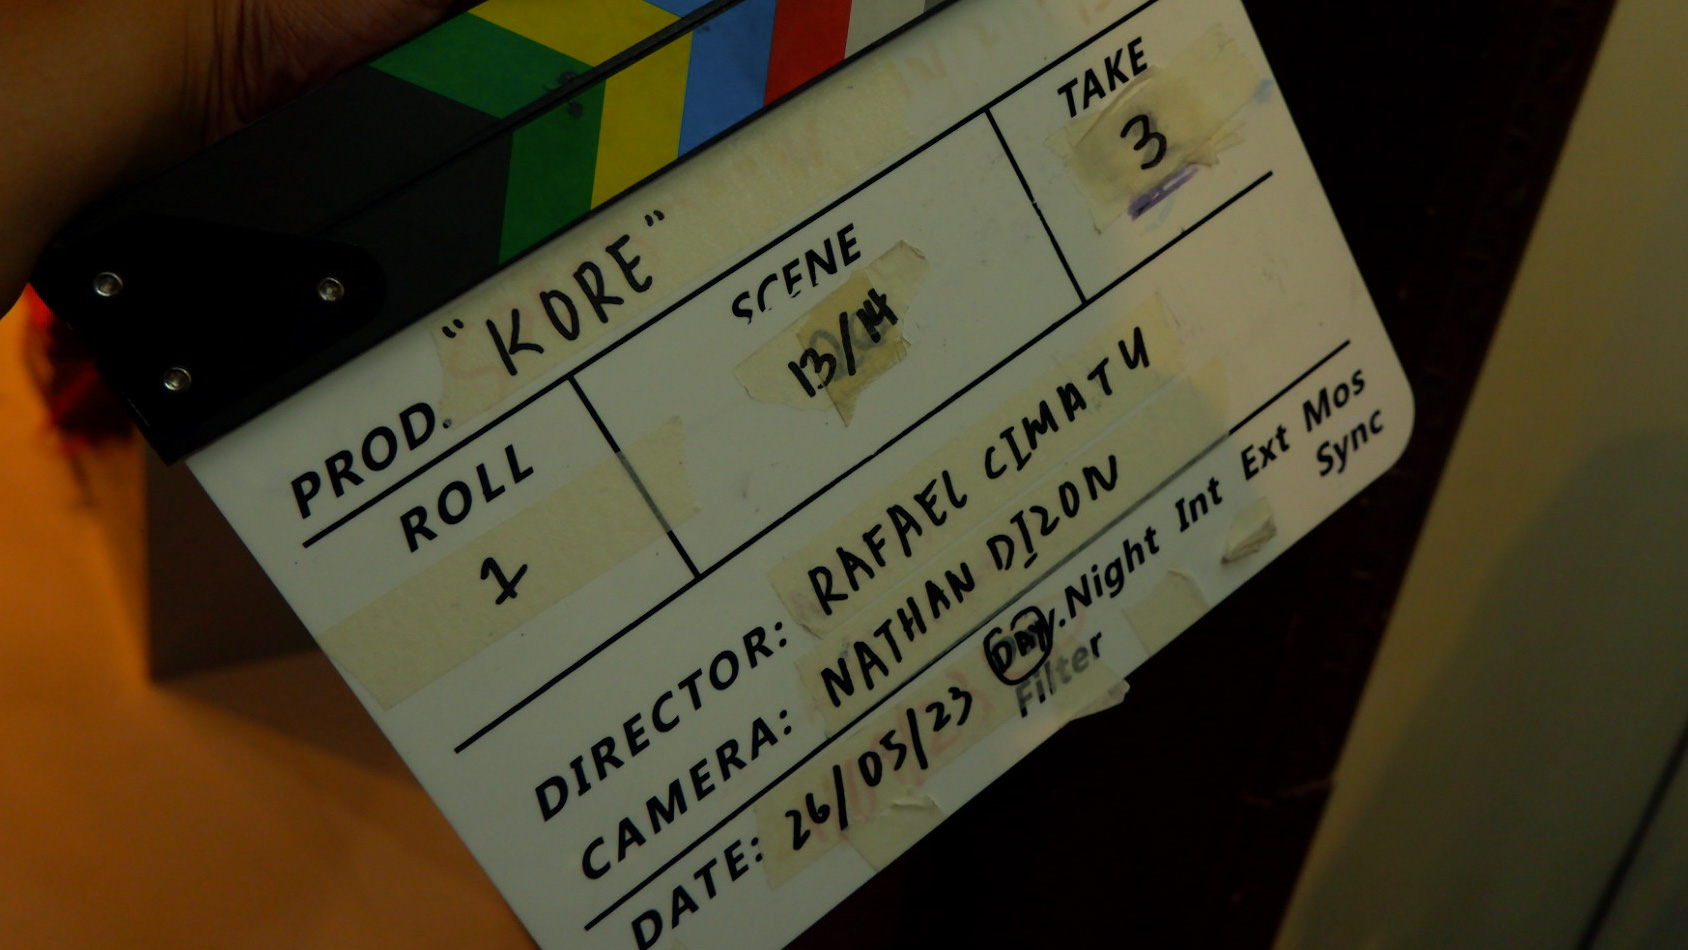 PROD. "KORE"
ROLL
1
SCENE
13/14
TAKE
3
DIRECTOR: RAFAEL CIMATU
CAMERA: NATHAN DIZON
DATE: 26/05/23
Day.Night Int Ext Mos
Filter
Sync